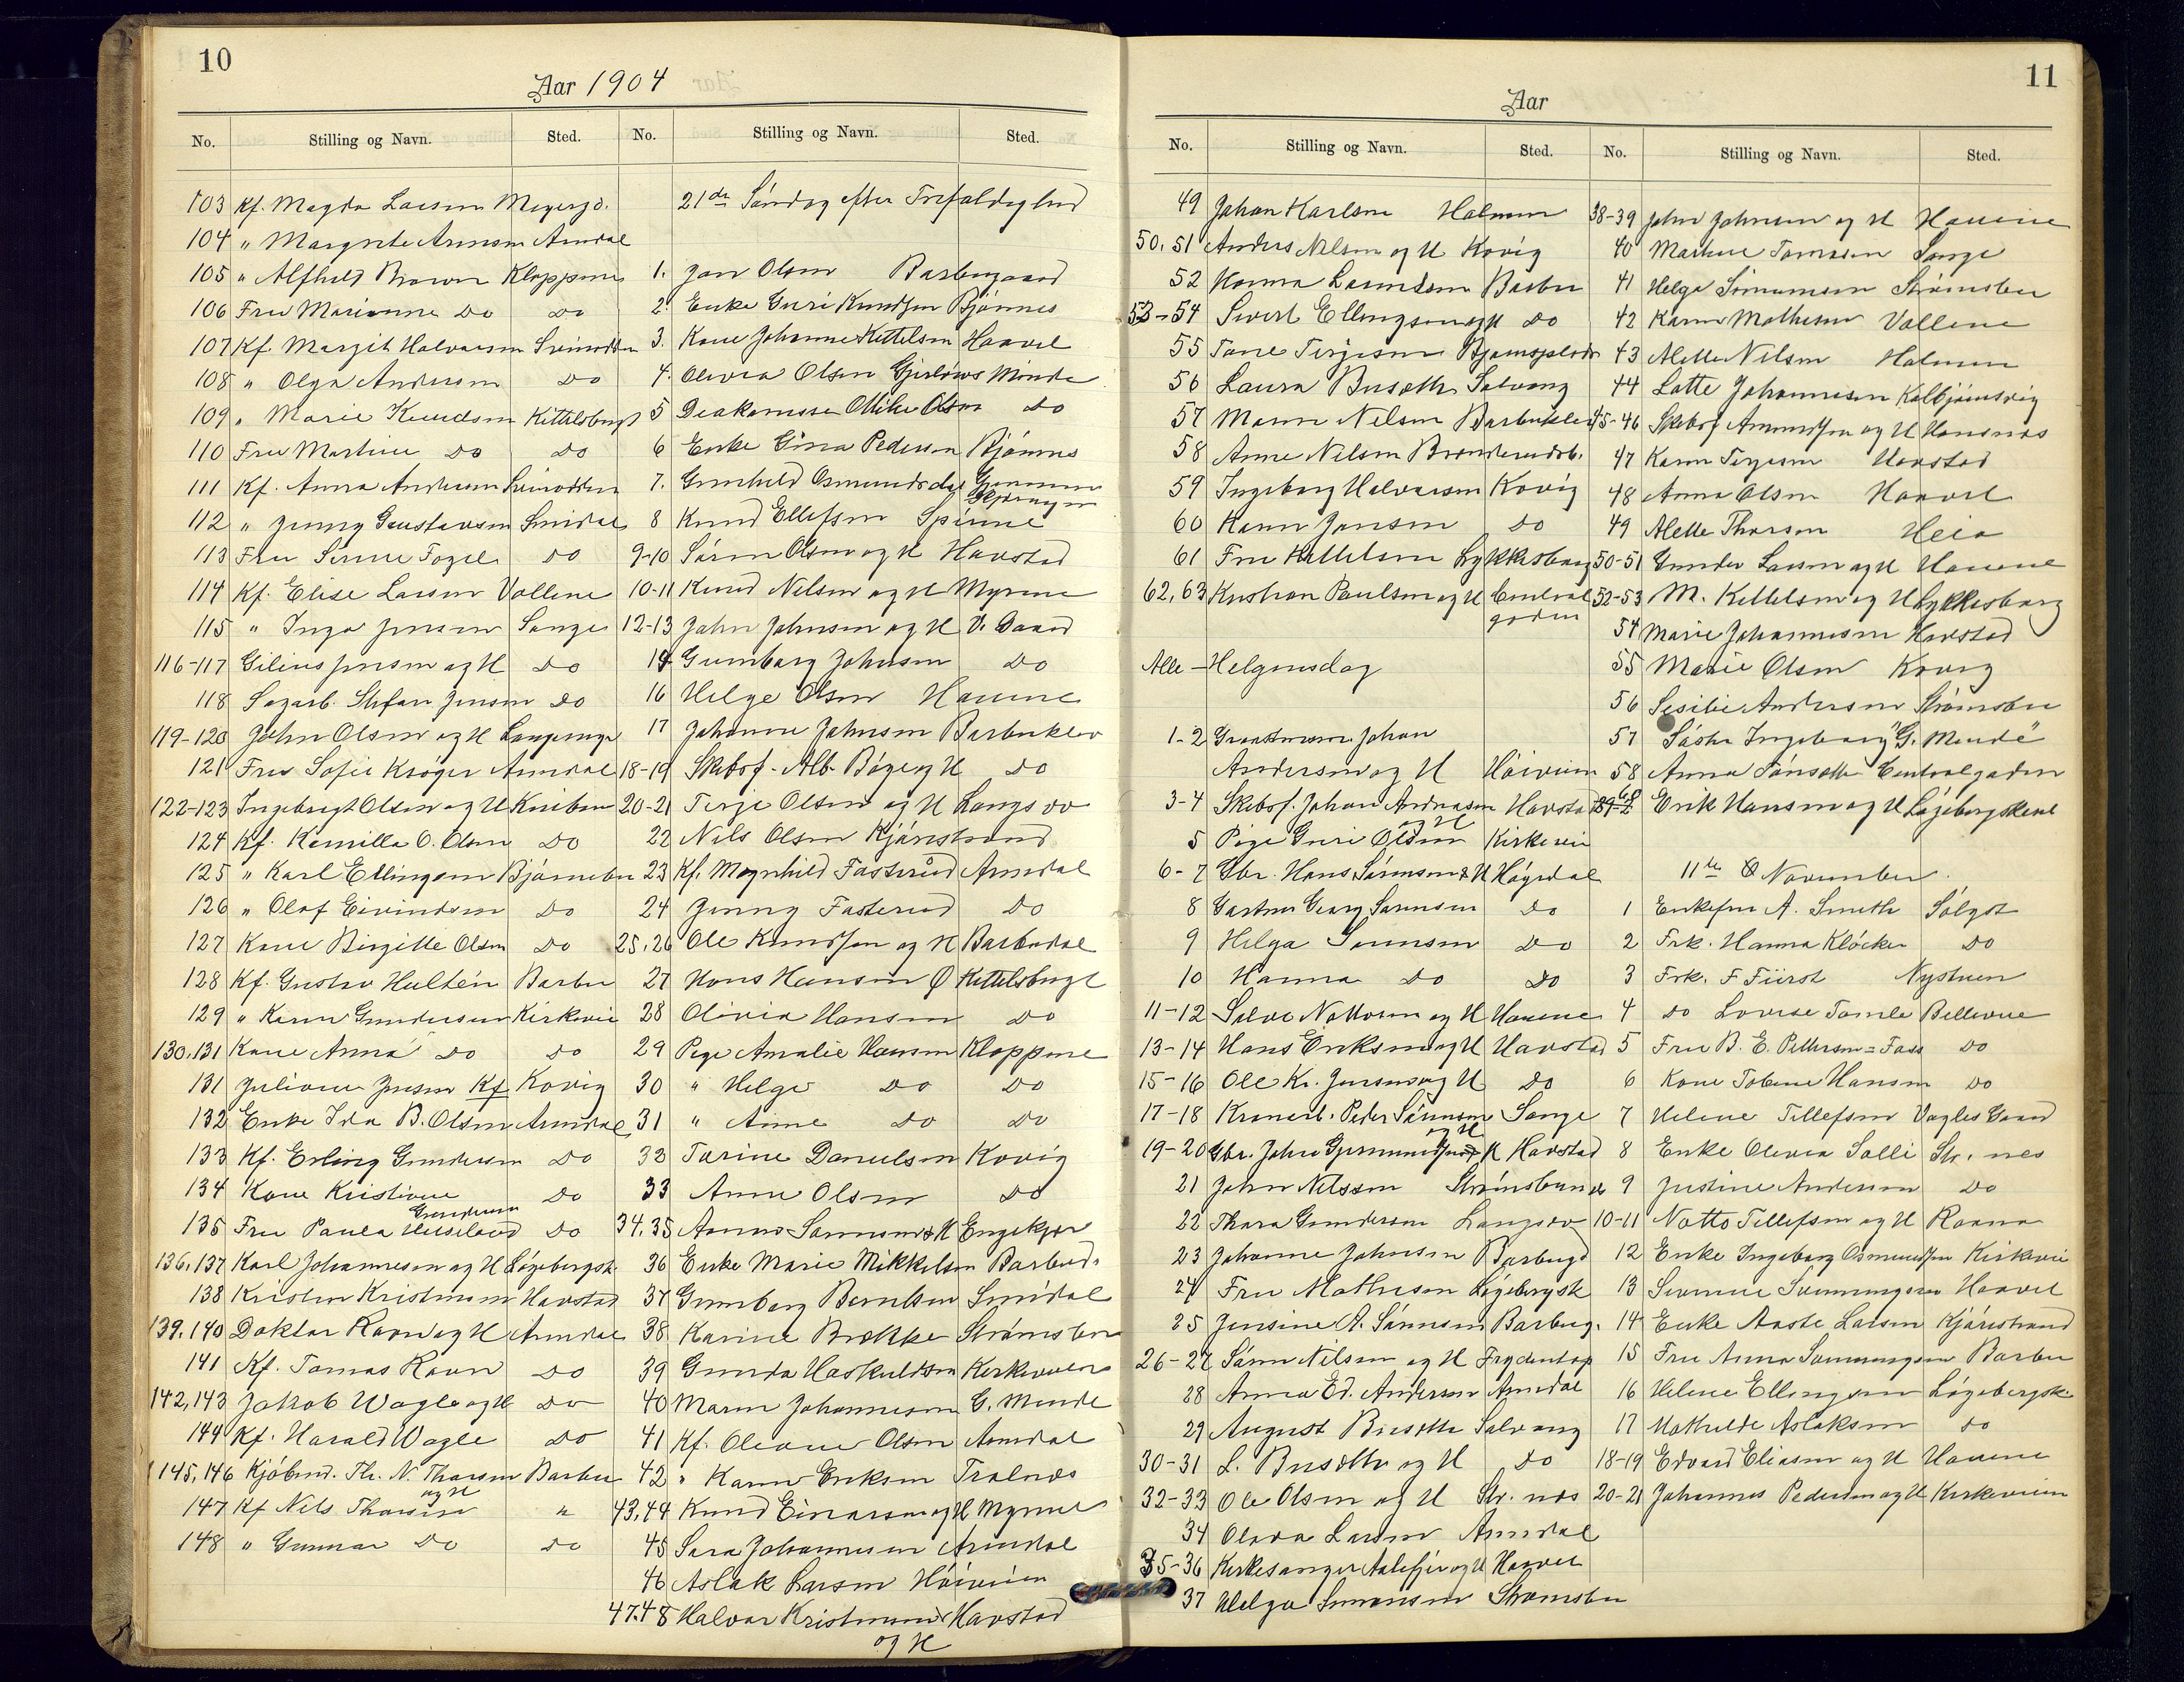 10
Aar 1904
No. Stilling og Navn. Sted.
103 Kf. Magda Larsen Meyersgd.
104 " Margrete Arnesen Arendal
105 " Alfhild Brown Kloppene
106 Fru Marianne Do Do
107 Kf. Margit Halvorsen
108 " Olga Andersen Do
109 " Marie Knudsen Kittelsbugt
110 Fru Martine Do Do
111 Kf. Anna Andersen
112 " Jenny Gustavsen
113 Fru Do
114 Kf. Elise Larsen Vollene
115 " Inga Jensen Songe
116-117 Jensen og H Do
118 Stefan Jensen Do
119-120 John Olsen og H
121 Fru Sofie Krøger Arendal
122-123 Ingebrigt Olsen og H
124 Kf. Kamilla O. Olsen Do
125 " Karl Ellingsen
126 " Olaf Eivindsen Do
127 Kone Birgitte Olsen Do
128 Kf. Gustav Hultén Barbu
129 " Karen Gundersen Kirkevei
130.131 Kone Anna Do Do
131 Juliane Jensen Kf Kovig
132 Enke Ida B. Olsen Arendal
133 Kf. Erling Gundersen Do
134 Kone Kristiane Gundersen Do
135 Fru Paula Do
136.137 Karl Johannesen og H Løgebergsk.
138 Kristen Kristensen Havstad
139.140 Doktor Ravn og H Arendal
141 Kf. Tomas Ravn Do
142,143 Jakob Wagle og H Do
144 Kf. Harald Wagle Do
145,146 Kjøbmd. Th. N. Thorsen og H Barbu
147 Kf Nils Thorsen "
148 " Gunnar Do Do
No. Stilling og Navn. Sted.
21de Søndag efter Trefoldighed
1. Jan Olsen Barbugaard
2. Enke Guri Knudsen Bjønnes
3. Kone Johanne Kittelsen Haavel
4. Olivia Olsen Gjerløws Minde
5 Diakonisse Otilie Olsen Do
6 Enke Gina Pedersen Bjønnes
7. Gunhild Osmundsdal
8 Knud Ellefsen
9-10 Søren Olsen og H Havstad
10-11 Knud Nilsen og H Myrene
12-13 John Johnsen og H V. Gaard
14 Gunborg Johnsen Do
16 Helge Olsen Hauene
17 Johanne Johnsen Barbuklev
18-19 Skibsf. Alb. Bøge og H Do
20-21 Terje Olsen og H Langsæv
22 Nils Olsen Kjørestrand
23 Kf. Magnhild Fosterud Arendal
24 Jenny Fosterud Do
25.26 Ole Knudsen og H Barbudal
27 Hans Hansen Ø Kittelsbugt
28 Olivia Hansen Do
29 Pige Amalie Hansen Kloppene
30 " Helga Do Do
31 " Anne Do Do
32 Torine Danielsen Kovig
33 Anne Olsen Do
34.35 Sørensen & H Engekjær
36 Enke Marie Mikkelsen Barbud.
37 Gunborg Berntsen
38 Karine Brække Strømsbu
39 Gunda Haskuldsen Kirkeveien
40 Maren Johannesen G. Minde
41 Kf. Oleane Olsen Arendal
42 " Karen Eriksen Tralnæs
43.44 Knud Einarsen og H Myrene
45 Sara Johannesen Arendal
46 Aslak Larsen Høiveien
47.48 Halvor Kristensen Havstad
og H
11
Aar
No. Stilling og Navn. Sted.
49 Johan Karlsen Holmen
50.51 Anders Nilsen og H Kovig
52 Hanna Barbu
53-54 Sivert Ellingsen og H Do
55 Tone Terjesen
56 Laura Busæth Solvang
57 Maren Nilsen Barbuklev
58 Anne Nilsen
59 Ingeborg Halvorsen Kovig
60 Karen Jansen Do
61 Fru Kittelsen Lykkesborg
62,63 Kristian Paulsen og H Centralgaden
Alle-Helgensdag
1-2 Johan Andersen og H Høiveien
3-4 Skibsf. Johan Andreasen og H Havstad
5 Pige Guri Olsen Kirkevei
6-7 Gbr. Hans Sørensen & H Høgedal
8 Gartner Georg Sørensen Do
9 Helga Sørensen Do
10 Hanna Do Do
11-12 Salve Nottosen og H Hauene
13-14 Hans Eriksen og H Havstad
15-16 Ole Kr. Jensen og H Do
17-18 Peder Sørensen og H Songe
19-20 Gbr. John H Havstad
21 John Nilssen Strømsbunæs
22 Thora Gundersen Langsæv
23 Johanne Johnsen Barbugd
24 Fru Mathesen Løgebergsk
25 Jensine A. Sørensen Barbug.
26-27 Søren Nilsen og H Frydentop
28 Anna Ed. Andersen Arendal
29 August Busæth Solvang
30-31 L. Busæth og H Do
32-33 Ole Olsen og H Str. næs
34 Olava Larsen Arendal
35-36 Kirkesanger Aalefjær og H Haavel
37 Helga Simonsen Strømsbu
No. Stilling og Navn. Sted.
38-39 John Johnsen og H Hauene
40 Martine Tomasen Songe
41 Helga Simonsen Strømsbu
42 Karen Mathesen Vollene
43 Alette Nilsen Holmen
44 Lotte Johannesen Kolbjørnsvig
45-46 Skibsf Amundsen og H Hansnæs
47 Karen Terjesen Havstad
48 Anna Olsen Haavel
49 Alette Thorsen Heia
50-51 Gunder Larsen og H Hauene
52-53 M. Kittelsen og H Lykkesborg
54 Marie Johannesen Havstad
55 Marie Olsen Kovig
56 Sesilie Andersen Strømsbu
57 Søster Ingeborg "G. Minde"
58 Anna Tønseth Centralgaden
59-60 Erik Hansen og H Løgebergskleiv
11te November.
1 Enkefru A. Smith Sølyst
2 Frk. Hanna Kløcker Do
3 Frk. F Fürst Nystuen
4 Do Lovise Tomle Bellevue
5 Fru B. E. Pettersen=Foss Do
6 Kone Tobine Hansen Do
7 Helene Tellefsen Vagles Gaard
8 Enke Olivia Solli Str. næs
9 Justine Andersen Do
10-11 Notto Tellefsen og H Raana
12 Enke Ingeborg Osmundsen Kirkevei
13 Severine Svenningsen Haavel
14 Enke Aaste Larsen Kjørestrand
15 Fru Anna Svenningsen Barbu
16 Helene Ellingsen Løgebergsk.
17 Mathilde Aslaksen Do
18-19 Edvard Eliasen og H Hauene
20-21 Johannes Pedersen og H Kirkeveien